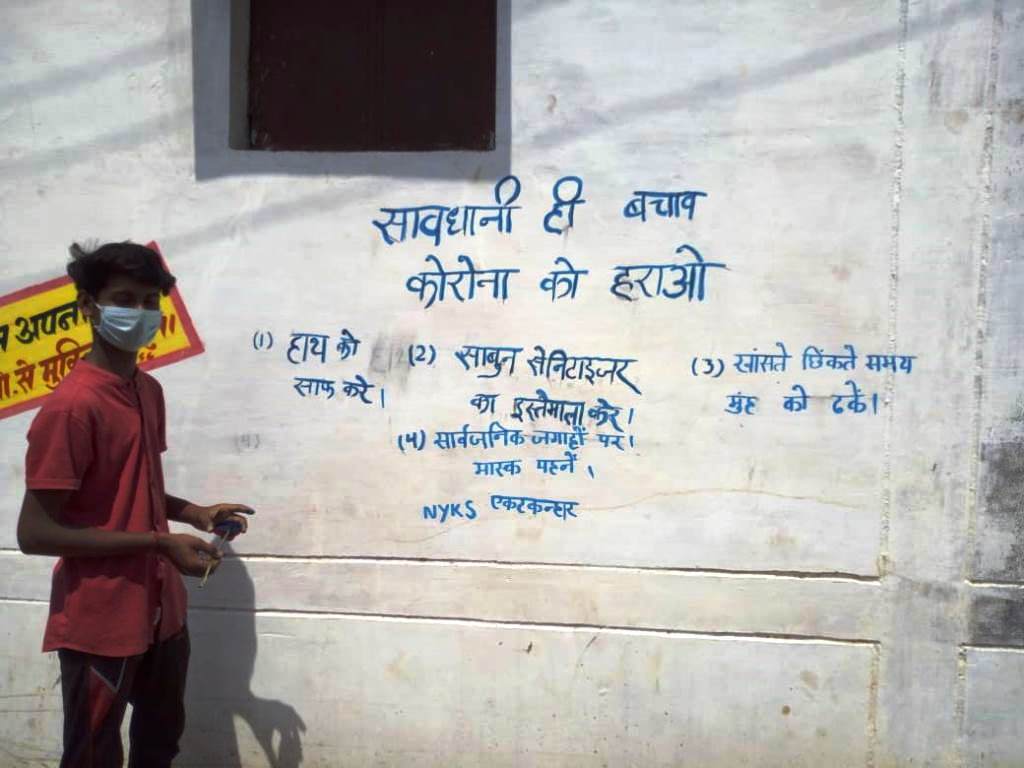 सावधानी ही बचाव
कोरोना को हराओ
(1) हाथ को
साफ करे।
(2) साबुन सेनिटाइजर
का इस्तेमाल करे।
(3) खांसते छिंकते समय
मुंह को ढकें।
(4) सार्वजनिक जगाहों पर।
मास्क पहनें।
NYKS एकटकन्हार
अपन
से